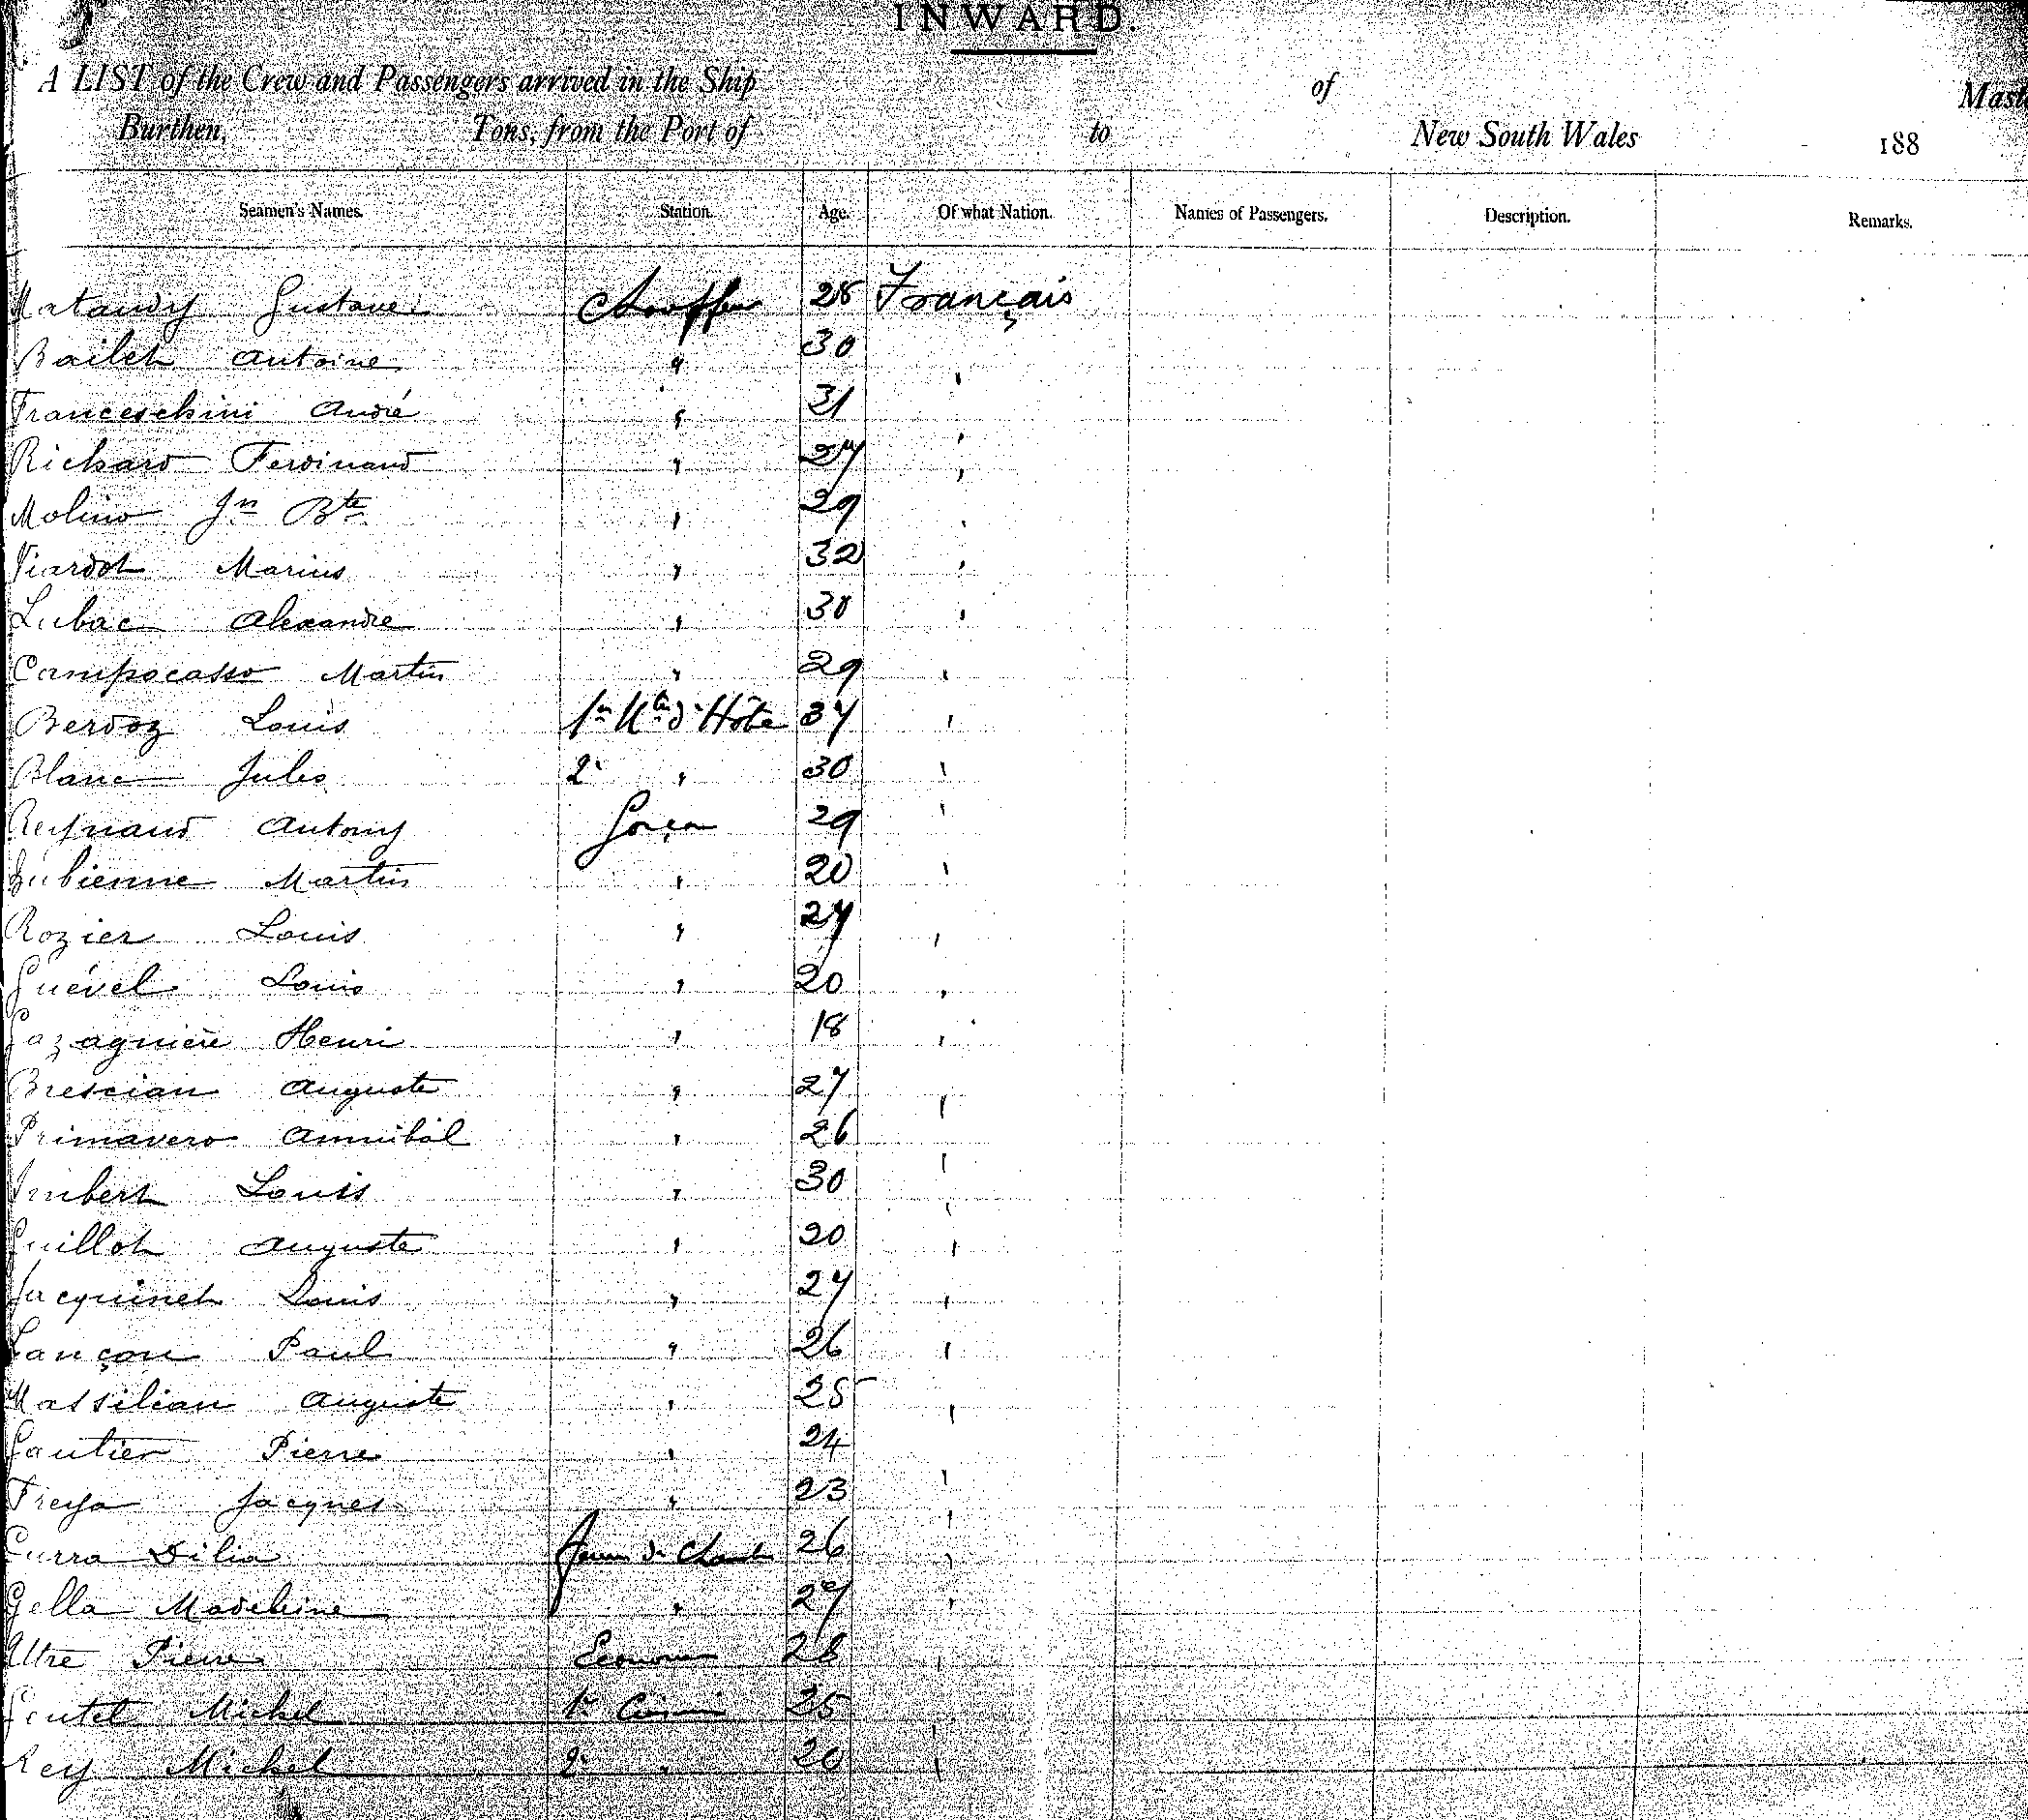 INWARD.
A LIST of the Crew and Passengers arrived in the Ship of Mast
Burthen, Tons, from the Port of to New South Wales 188
Seamen's Names. Station. Age. Of what Nation. Names of Passengers. Description. Remarks.
Gustave Chauffeur 28 Français
Bailet Antoine " 30 "
Franceschini André " 31 "
Richard Ferdinand " 27 "
Molino Jn Bte " 29 "
Viardot Marius " 32 "
Lubac Alexandre " 30 "
Campocasso Martin " 29 "
Berdoz Louis d'Hôtel 37 "
Blanc Jules 2e " 30 "
Reynaud Antony Garçon 29 "
Martin " 20 "
Rozier Louis " 27 "
Guével Louis " 20 "
Gazagnière Henri " 18 "
Brescian Auguste " 27 "
Primavero Annibal " 26 "
Imbert Louis " 30 "
Guillot Auguste " 20 "
Jacquinet Louis " 27 "
Lançon Paul " 26 "
Massilian Auguste " 25 "
Gautier Pierre " 24 "
Freya Jacques " 23 "
Curra Délia de 26 "
Gella Madeleine " 27 "
Pierre 28 "
Michel 1er 25
Rey Michel 2e " 20 "